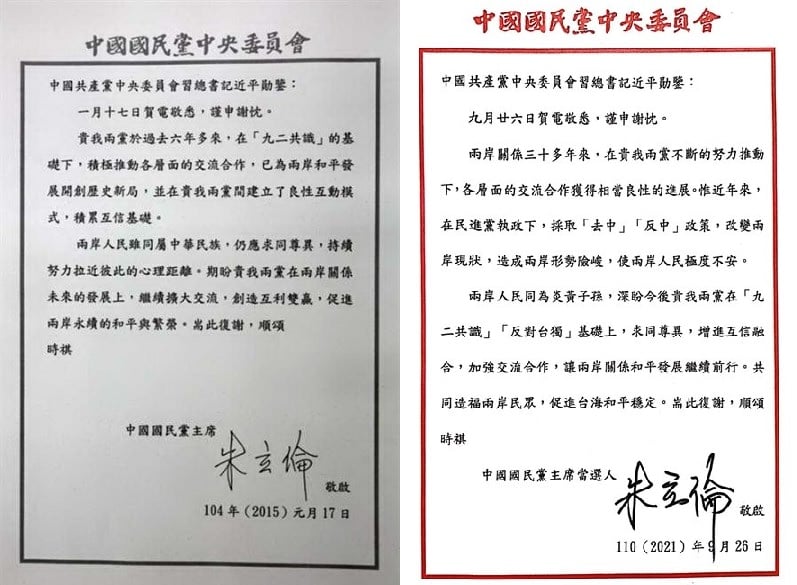 中國國民黨中央委員會
中國共產黨中央委員會習總書記近平勛鑒：
一月十七日賀電敬悉，謹申謝忱。
貴我兩黨於過去六年多來，在「九二共識」的基
礎下，積極推動各層面的交流合作，已為兩岸和平發
展開創歷史新局，並在貴我兩黨間建立了良性互動模
式，積累互信基礎。
兩岸人民雖同屬中華民族，仍應求同尊異，持續
努力拉近彼此的心理距離。期盼貴我兩黨在兩岸關係
未來的發展上，繼續擴大交流，創造互利雙贏，促進
兩岸永續的和平與繁榮。耑此復謝，順頌
時祺
中國國民黨主席
朱立倫
敬啟
104 年（2015）元月 17 日
中國國民黨中央委員會
中國共產黨中央委員會習總書記近平勛鑒：
九月廿六日賀電敬悉，謹申謝忱。
兩岸關係三十多年來，在貴我兩黨不斷的努力推動
下，各層面的交流合作獲得相當良性的進展。惟近年來，
在民進黨執政下，採取「去中」「反中」政策，改變兩
岸現狀，造成兩岸形勢險峻，使兩岸人民極度不安。
兩岸人民同為炎黃子孫，深盼今後貴我兩黨在「九
二共識」「反對台獨」基礎上，求同尊異，增進互信融
合，加強交流合作，讓兩岸關係和平發展繼續前行。共
同造福兩岸民眾，促進台海和平穩定。耑此復謝，順頌
時祺
中國國民黨主席當選人
朱立倫
敬啟
110（2021）年 9 月 26 日